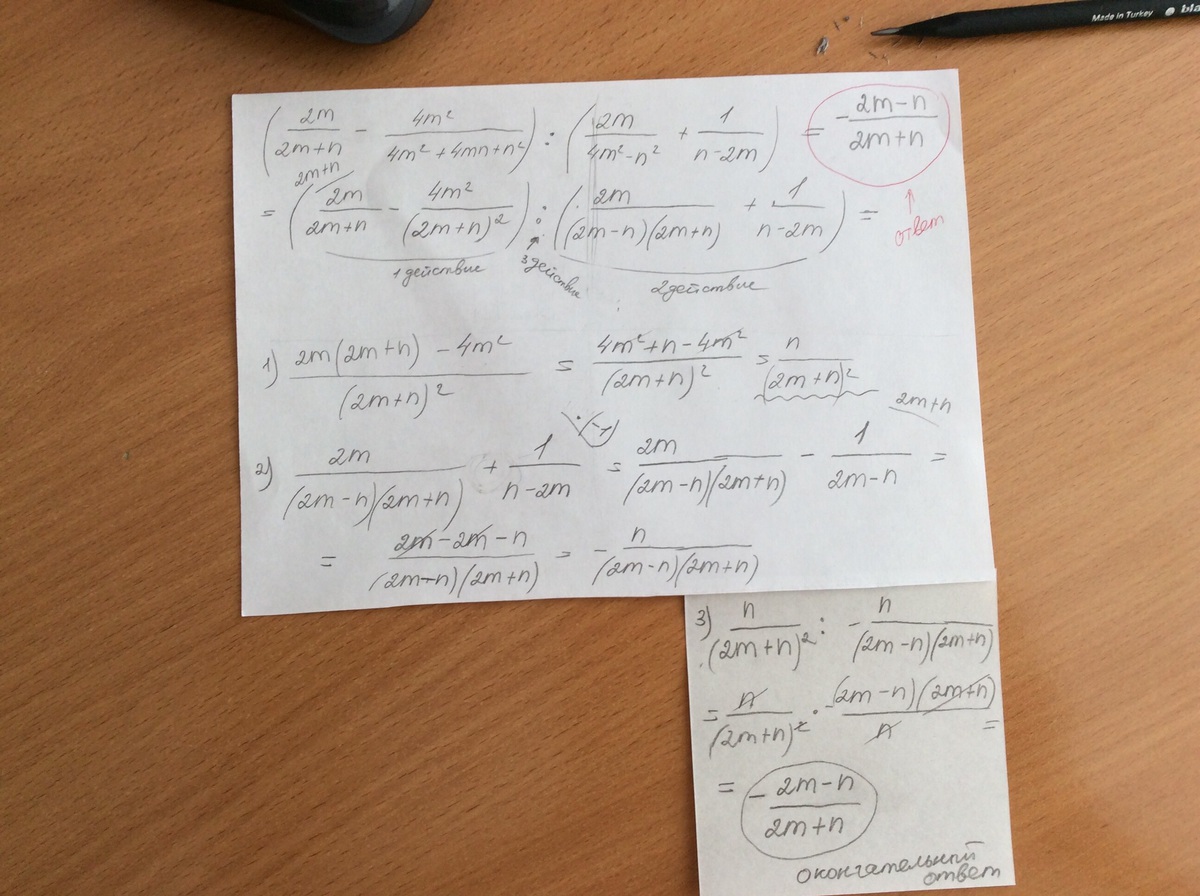 Made in Turkey bla
(2m/(2m+n) - 4m²/(4m²+4mn+n²)) : (2m/(4m²-n²) + 1/(n-2m)) = -(2m-n)/(2m+n)
2m+n
= (2m/(2m+n) - 4m²/(2m+n)²) : (2m/((2m-n)(2m+n)) + 1/(n-2m)) =
ответ
1 действие 3 действие 2 действие
1) (2m(2m+n) - 4m²)/(2m+n)² = (4m²+n-4m²)/(2m+n)² = n/(2m+n)²
·(-1) 2m+n
2) 2m/((2m-n)(2m+n)) + 1/(n-2m) = 2m/((2m-n)(2m+n)) - 1/(2m-n) =
= (2m-2m-n)/((2m-n)(2m+n)) = -n/((2m-n)(2m+n))
3) n/(2m+n)² : -n/((2m-n)(2m+n))
= n/(2m+n)² · -(2m-n)(2m+n)/n =
= -(2m-n)/(2m+n)
окончательный
ответ